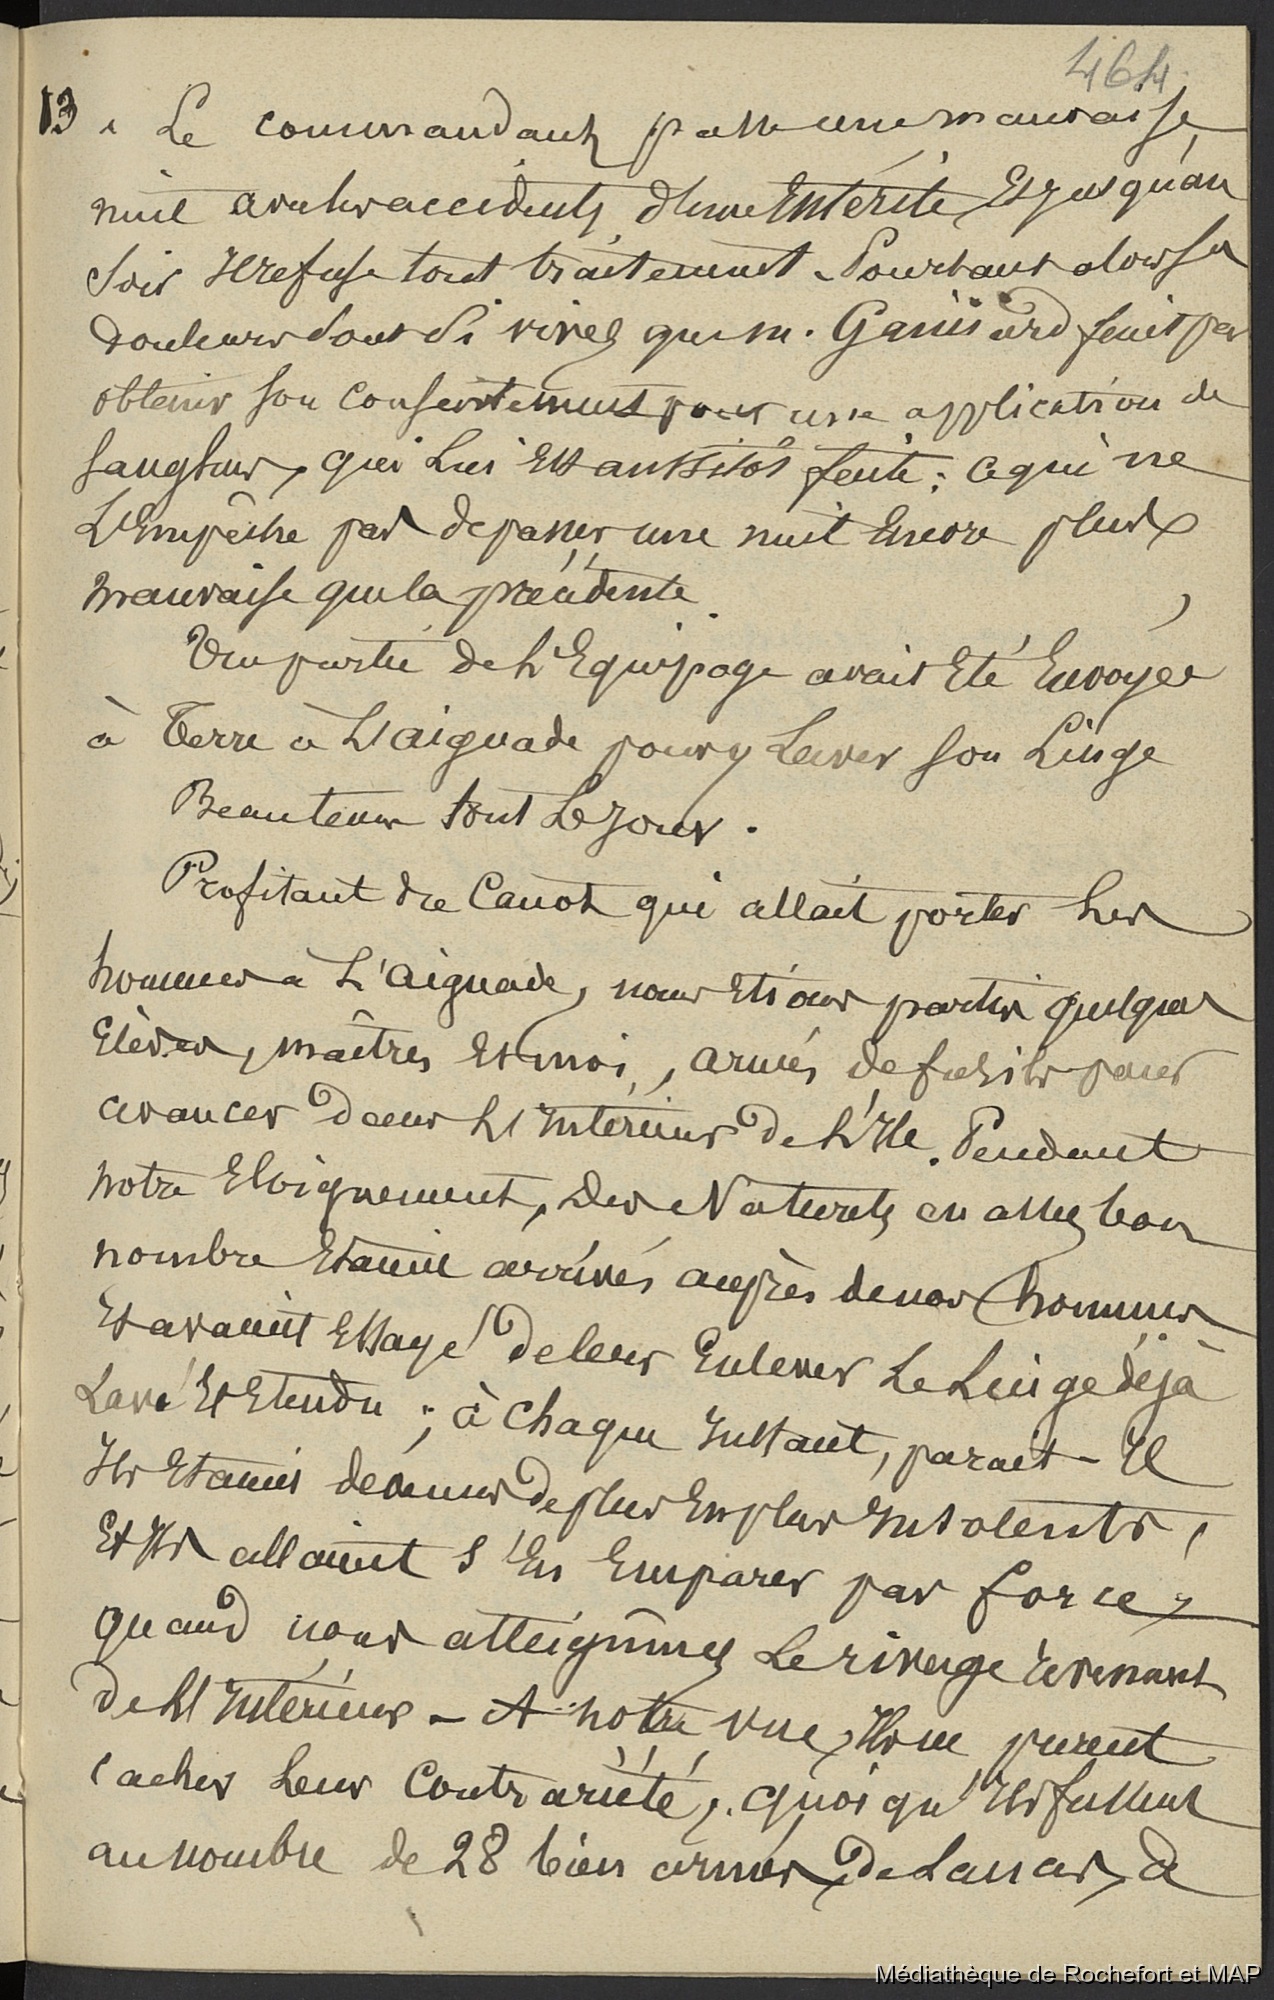 464
13. Le commandant passe une mauvaise
nuit avec les accidents d'une Entérite Et jusqu'au
soir Il refuse tout traitement. Pourtant alors ses
douleurs sont si vives que m. finit par
obtenir son consentement pour une application de
sangsues, qui lui Est aussitôt faite ; ce qui ne
L'Empêche pas de passer une nuit Encore plus
mauvaise que la précédente.
Une partie de L'Equipage avait Eté Envoyée
à Terre à L'aiguade pour y Laver son Linge
Beau temps tout Le Jour.
Profitant du Canot qui allait porter Les
hommes à L'Aiguade, nous Etions partis quelques
Elèves, maîtres Et moi, armés de fusils pour
avancer dans L'Intérieur de L'Ile. Pendant
notre Eloignement, des Naturels en assez bon
nombre Etaient arrivés auprès de nos hommes
Et avaient Essayé de leur Enlever Le Linge déjà
Lavé Et Etendu ; à chaque Instant, parait-Il
Ils Etaient devenus de plus En plus Insolents,
Et Ils allaient s'En Emparer par force,
quand nous atteignîmes Le rivage revenant
de L'Intérieur. - A notre vue, Ils ne purent
cacher Leur Contrariété, quoiqu'Ils fussent
au nombre de 28 bien armés de Lances, d
Médiathèque de Rochefort et MAP